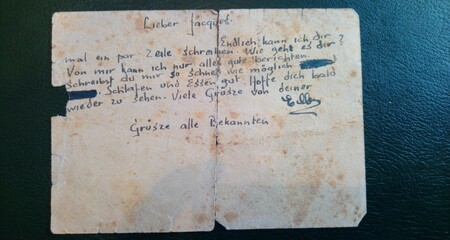 Lieber Jacques.
Endlich kann ich dir
mal ein par Zeile schreiben. Wie geht es dir?
Von mir kann ich nur alles gute berichten.
Schreibst du mir so schnel wie möglich
Schlafen und Essen gut. Hoffe dich bald
wieder zu sehen. Viele Grüsze von deiner
Grüsze alle Bekannten